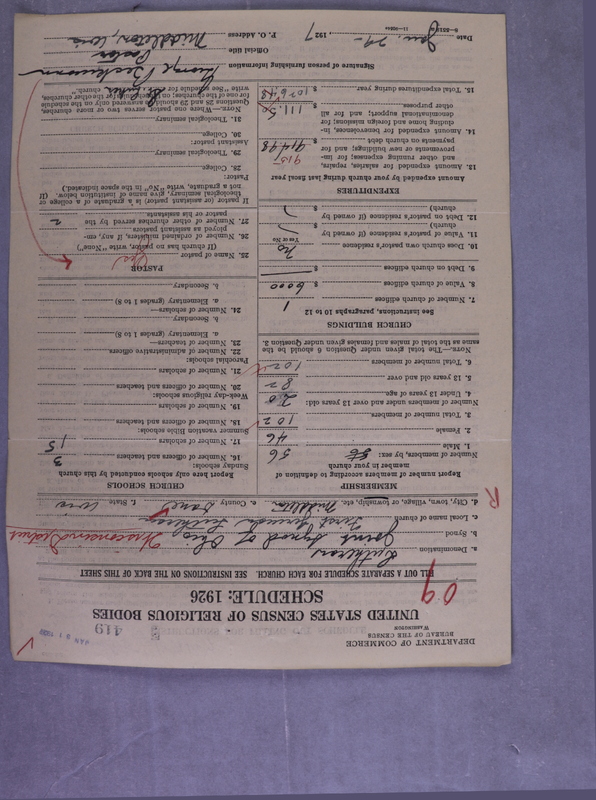 DEPARTMENT OF COMMERCE
BUREAU OF THE CENSUS
WASHINGTON
JAN 31 1927
419
UNITED STATES CENSUS OF RELIGIOUS BODIES
SCHEDULE: 1926
09
FILL OUT A SEPARATE SCHEDULE FOR EACH CHURCH. SEE INSTRUCTIONS ON THE BACK OF THIS SHEET
a. Denomination Lutheran
b. Synod Joint Synod of Ohio Wisconsin District
c. Local name of church First German Lutheran
d. City, town, village, or township, etc. Middleton e. County Dane f. State Wis
R
MEMBERSHIP
Report number of members according to definition of member in your church
Number of members, by sex:
1. Male 56
2. Female 46
3. Total number of members 102
Number of members under and over 13 years old:
4. Under 13 years of age 20
5. 13 years old and over 82
6. Total number of members 102
NOTE.—The total given under Question 6 should be the same as the total of males and females given under Question 3.
CHURCH BUILDINGS
See instructions, paragraphs 10 to 12
7. Number of church edifices 1
8. Value of church edifices $ 6000
9. Debt on church edifices $
10. Does church own pastor's residence no
Yes or No
11. Value of pastor's residence (if owned by church) $
12. Debt on pastor's residence (if owned by church) $
EXPENDITURES
Amount expended by your church during last fiscal year
13. Amount expended for salaries, repairs, and other running expenses; for improvements or new buildings; and for payments on church debt $ 914.98
915
14. Amount expended for benevolences, including home and foreign missions; for denominational support; and for all other purposes $ 111.50
15. Total expenditures during year $ 1026.48
CHURCH SCHOOLS
Report here only schools conducted by this church
Sunday schools:
16. Number of officers and teachers 3
17. Number of scholars 15
Summer vacation Bible schools:
18. Number of officers and teachers
19. Number of scholars
Week-day religious schools:
20. Number of officers and teachers
21. Number of scholars
Parochial schools:
22. Number of administrative officers
23. Number of teachers—
a. Elementary (grades 1 to 8)
b. Secondary
24. Number of scholars—
a. Elementary (grades 1 to 8)
b. Secondary
PASTOR
25. Name of pastor
(If church has no pastor, write "None")
26. Number of ordained ministers, if any, employed as assistant pastors
27. Number of other churches served by the pastor or his assistants 2
If pastor (or assistant pastor) is a graduate of a college or theological seminary, give name of institution below. (If not a graduate, write "No" in the space indicated.)
Pastor:
28. College
29. Theological seminary
Assistant pastor:
30. College
31. Theological seminary
NOTE.—Where one pastor serves two or more churches, Questions 28 and 29 should be answered only on the schedule for one of the churches; on the schedule for the other churches, write "See schedule for church."
Signature of person furnishing information George Beckmann
Official title Pastor
P. O. Address Middleton, Wis
Date Jan. 29 - 1927